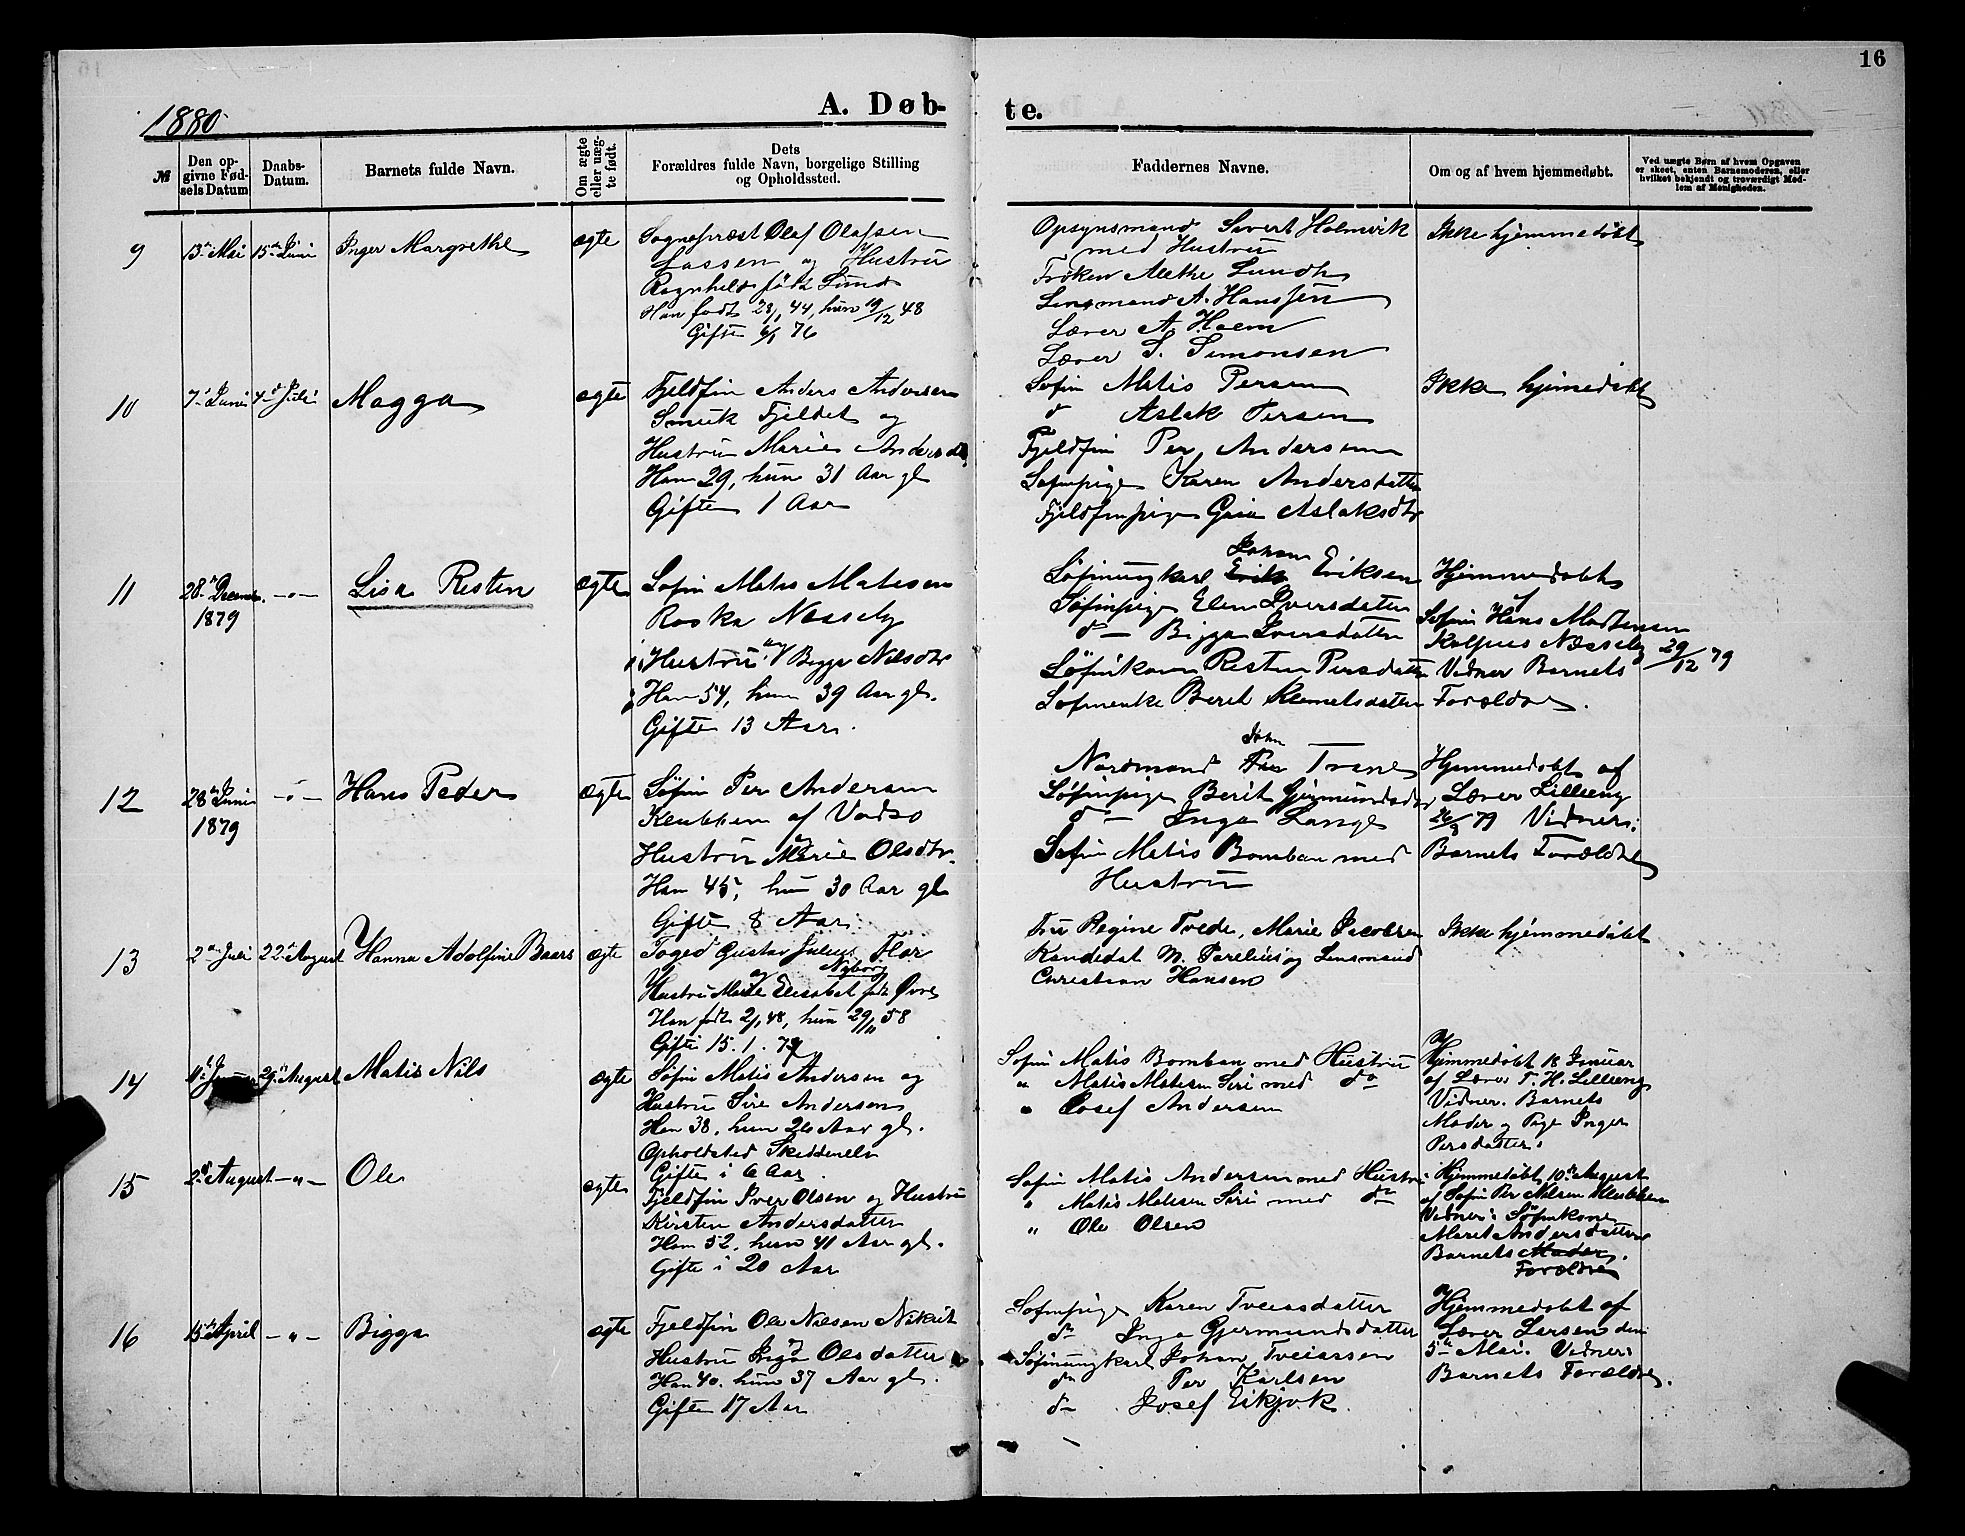 16
1880
A. Døb-
te.
№
Den opgivne Fødsels Datum
Daabs-Datum.
Barnets fulde Navn.
Om ægte eller uægte født.
Dets Forældres fulde Navn, borgelige Stilling og Opholdssted.
Faddernes Navne.
Om og af hvem hjemmedøbt.
Ved uægte Børn af hvem Opgaven er skeet, enten Barnemoderen, eller hvilket bekjendt og troværdigt Medlem af Menigheden.
9
13de Mai
15de Juni
Inger Margrethe
ægte
Sognepræst Olaf Olafsen
Lassen og Hustru
Ragnhild født Lund
Han født 28/1 44, hun 19/12 48
Gifte 6/1 76
Opsynsmand Sivert Holmvik
med Hustru
Frøken Alethe Lund
Lensmand A. Hanssen
Lærer A. Hoem
Lærer S. Simonsen
Ikke hjemmedøbt
10
7de Juni
4de Juli
Magga
ægte
Fjeldfin Anders Andersen
Smuk Fjeldet og
Hustru Marie Andersd
Han 29, hun 31 Aar gl
Gifte 1 Aar
Søfin Matis Persen
do Aslak Persen
Fjeldfin Per Andersen
Søfinpige Karen Andersdatter
Fjeldfinpige Aslaksdtr
Ikke hjemmedøbt
11
28de Decembr.
1879
-"-
Lisa Risten
ægte
Søfin Matis Matisen
Roska Nesseby
og
Hustru Bigga Nilsdtr
Han 54, hun 39 Aar gl.
Gifte 13 Aar.
Johan
Søfinungkarl Erik Eriksen
Søfinpige Elen Iversdatter
do Bigga Iversdatter
Søfinkone Risten Persdatter
Søfinenke Berit Klemetsdatter
Hjemmedøbt
af
Søfin Hans Mathisen
Nesseby 29/12 79
Vidner Barnets
Forældre.
12
28de Juni
1879
-"-
Hans Peder
ægte
Søfin Per Andersen
Klubben af Vadsø
og
Hustru Marie Olsdtr.
Han 45, hun 30 Aar gl
Gifte 8 Aar.
John
Nordmand Per
Søfinpige Berit Gjermundsdtr
do Inga Lange
Søfin Matis Bomban med
Hustru
Hjemmedøbt af
Lærer Lilleeng
79 Vidner:
Barnets Forældre
13
2den Juli
22de August
Hanna Adolfine Baars
ægte
Foged Gustav Julius Flor
og Nyborg
Hustru Marie Elisabet født Øvre
Han født 2/1 48, hun 29/11 58
Gifte 15. 1. 79
Fru Regine Tvede, Marie Jacobsen
Kandidat M. Parelius og Lensmand
Christian Hansen
Ikke hjemmedøbt
14
29de August
Matis Nils
ægte
Søfin Matis Andersen og
Hustru Siri Andersen
Han 38, hun 26 Aar gl.
Opholdsted Skiddenelv
Gifte i 6 Aar
Søfin Matis Bomban med Hustru
" Matis Matisen Siri med do
" Josef Andersen
Hjemmedøbt 18 Januar
af Lærer T. H. Lilleeng
Vidner. Barnets
Moder og Pige Inger
Persdatter.
15
2den August
-"-
Ole
ægte
Fjeldfin Iver Olsen og Hustru
Kirsten Andersdatter
Han 52, hun 41 Aar gl.
Gifte i 20 Aar
Søfin Matis Andersen med Hustru
" Matis Matisen Siri med do
" Ole Olsen
Hjemmedøbt 10de August
af Søfin Per Nilsen Klubben
Vidner: Søfinkone
Maret Andersdatter
Barnets Moder.
Forældre
16
15de April
-"-
Bigga
ægte
Fjeldfin Ole Nilsen Nikut
og
Hustru Inga Olsdatter
Han 40, hun 37 Aar gl.
Gifte 17 Aar
Søfinpige Karen Tveiasdatter
do Inga Gjermundsdatter
Søfinungkarl Johan Tveiassen
do Per Karlsen
do Josef Eikjok.
Hjemmedøbt af
Lærer Larsen den
5te Mai. Vidner:
Barnets Forældre.